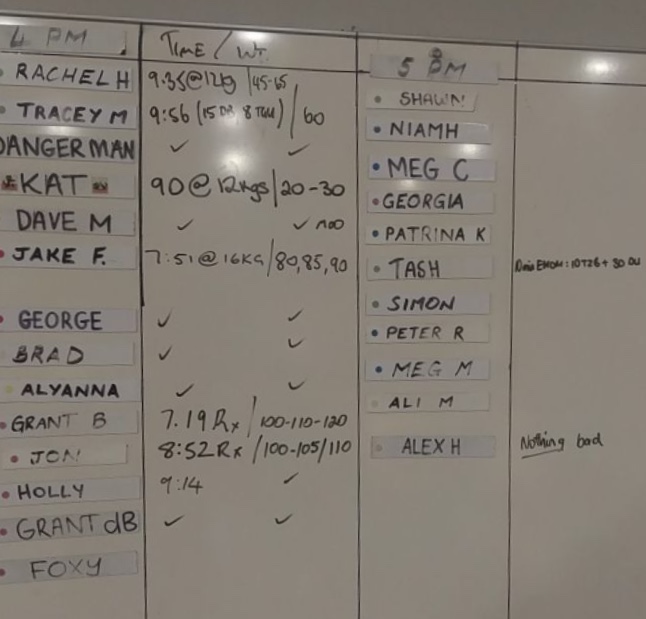 4 PM TIME / WT.
RACHEL H 9:35@12kg /45-65
TRACEY M 9:56 (15 DB, 8 TGU) / 60
DANGERMAN ✓ ✓
KAT 90@12kgs/20-30
DAVE M ✓ ✓ 100
JAKE F. 7:51@16KG/80,85,90
GEORGE ✓ ✓
BRAD ✓ ✓
ALYANNA ✓ ✓
GRANT B 7.19 Rx /100-110-120
JON 8:52 Rx /100-105/110
HOLLY 9:14 ✓
GRANT dB ✓ ✓
FOXY
5 PM
SHAWN
NIAMH
MEG C
GEORGIA
PATRINA K
TASH EMOM: 10T26 + 30 DU
SIMON
PETER R
MEG M
ALI M
ALEX H Nothing bad